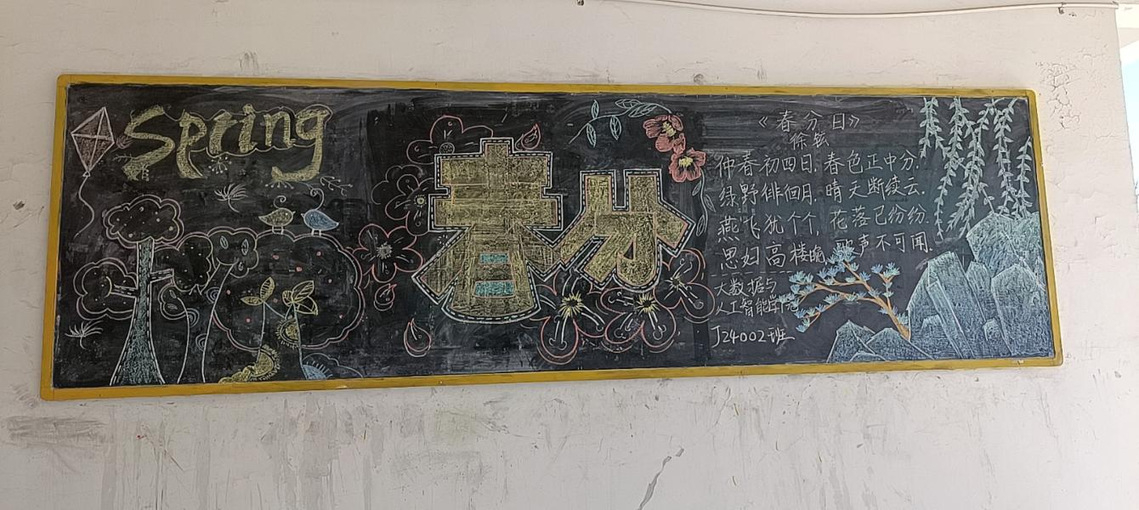 Spring
春分
《春分日》
徐铉
仲春初四日，春色正中分。
绿野徘徊月，晴天断续云。
燕飞犹个个，花落已纷纷。
思妇高楼晚，歌声不可闻。
大数据与
人工智能学院
J24002班